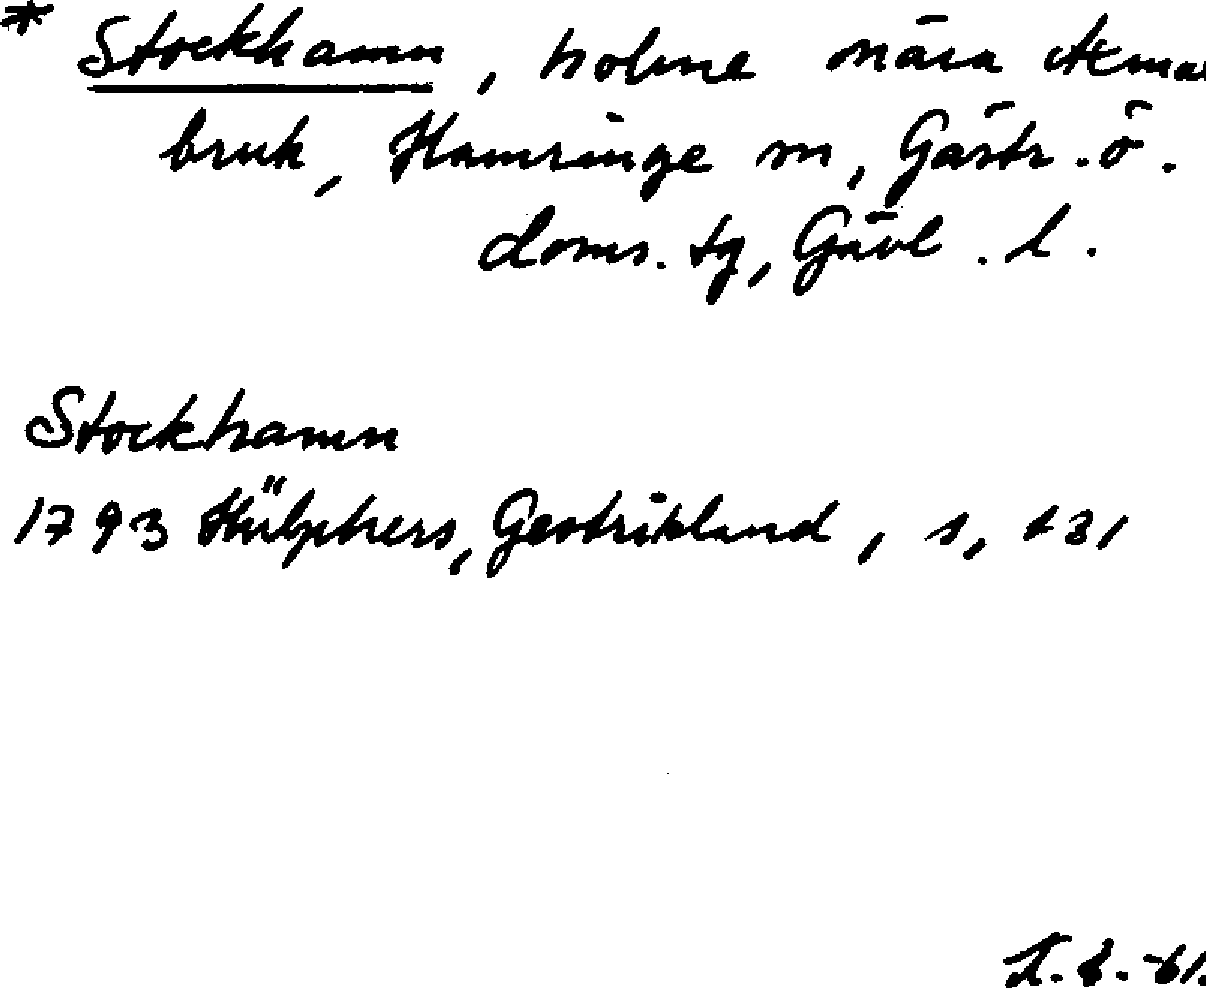 * Stockhamn, holme nära Axmar
bruk, Hamrånge sn, Gästr. ö.
doms. tg, Gävl. l.
Stockhamn
1793 Hülphers, Gestrikland, s, 231